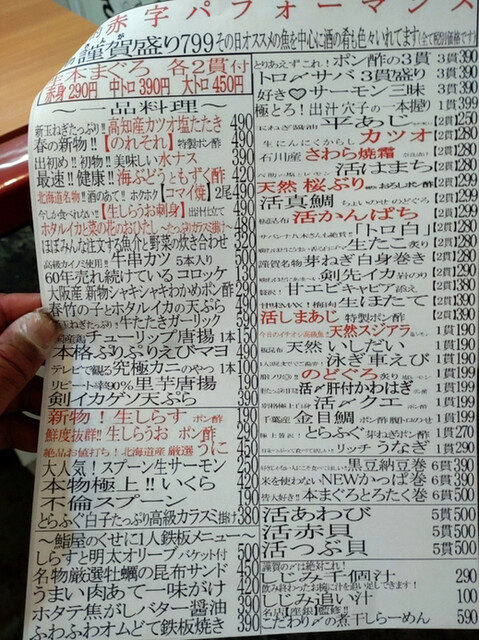 赤字パフォーマンス
謹賀盛り799 その日オススメの魚を中心に酒の肴も色々いれてます(全て税別価格です)
本まぐろ 各2貫付
赤身290円 中トロ390円 大トロ450円
〜一品料理〜
新玉ねぎたっぷり!! 高知産カツオ塩たたき 490
春の新物!!【のれそれ】特製ポン酢 490
出初め!!初物!!美味しい水ナス 390
最速!!健康!!海ぶどうともずく酢 420
北海道名物!!酒のあて!!ホクホク【コマイ焼】2尾 490
今しか食べれない!!【生しらうお刺身】出汁仕立て
ホタルイカと菜の花のおひたし〜たっぷりカラスミ掛け 480
ほぼみんな注文する魚介と野菜の炊き合わせ 320
高級カイノミ使用!! 牛串カツ 5本入り 500
60年売れ続けているコロッケ 130
大阪産 新物シャキシャキわかめポン酢 290
春竹の子とホタルイカの天ぷら 390
玉ねぎたっぷり牛たたきガーリック 590
チューリップ唐揚 1本150
本格ぷりぷりえびマヨ 490
テレビで観る究極カニのやつ 1本100
リピート率90% 里芋唐揚 190
剣イカゲソ天ぷら 390
新物!生しらす ポン酢 190
鮮度抜群!!生しらうお ポン酢 290
絶品お値打ち!北海道産 厳選うに 450
大人気!スプーン生サーモン 250
本物極上!!いくら 420
不倫スプーン 190
とらふぐ白子たっぷり高級カラスミ掛け 380
〜鮨屋のくせに1人鉄板メニュー〜
しらすと明太オリーブ バケット付 500
名物厳選牡蠣の昆布サンド 450
うまい肉あて一味がけ 400
ホタテ焦がしバター醤油 390
ふわふわオムどて鉄板焼き 390
とりあえずこれ!ポン酢の3貫 3貫390
トロ〆サバ 3貫盛り 3貫390
好き♡サーモン三昧 3貫390
極とろ!出汁穴子の一本握り 1貫399
平あじ 【2貫】250
生にんにくからし カツオ 【2貫】280
石川産 さわら焼霜 【2貫】280
活はまち 【2貫】280
天然 桜ぶり おろしポン酢 【2貫】299
活真鯛 ちょいのせ のどぐろ 【2貫】299
活かんぱち 【2貫】299
サバンナ八木さんも絶賛!! 「トロ白」 【2貫】280
生たこ 炙り 【2貫】280
謹賀名物 芽ねぎ白身巻き 【2貫】280
剣先イカ 岩のり 【2貫】280
甘エビキャビア添え 【2貫】380
甘味MAX! 生ほたて 【2貫】380
活しまあじ 特製ポン酢 【2貫】390
天然スジアラ 【1貫】190
天然いしだい 【1貫】190
泳ぎ車えび 【1貫】190
のどぐろ 炙り 【1貫】199
活〆肝付かわはぎ 【1貫】199
活〆クエ ポン酢 【1貫】199
千葉産 金目鯛 ポン酢 【1貫】199
とらふぐ 芽ねぎポン酢 【1貫】270
リッチうなぎ 【1貫】290
黒豆納豆巻 6貫390
米を使わないNEWかっぱ巻 6貫390
皆大好き!! 本まぐろとろたく巻 6貫500
活あわび 5貫500
活赤貝 5貫500
活つぶ貝 5貫500
謹賀の〆は絶対これ!
しじみ千個汁 290
飲み終わったお椀に汁を追い足しできます!
しじみ追い汁 100
こだわり〆の煮干しらーめん 590